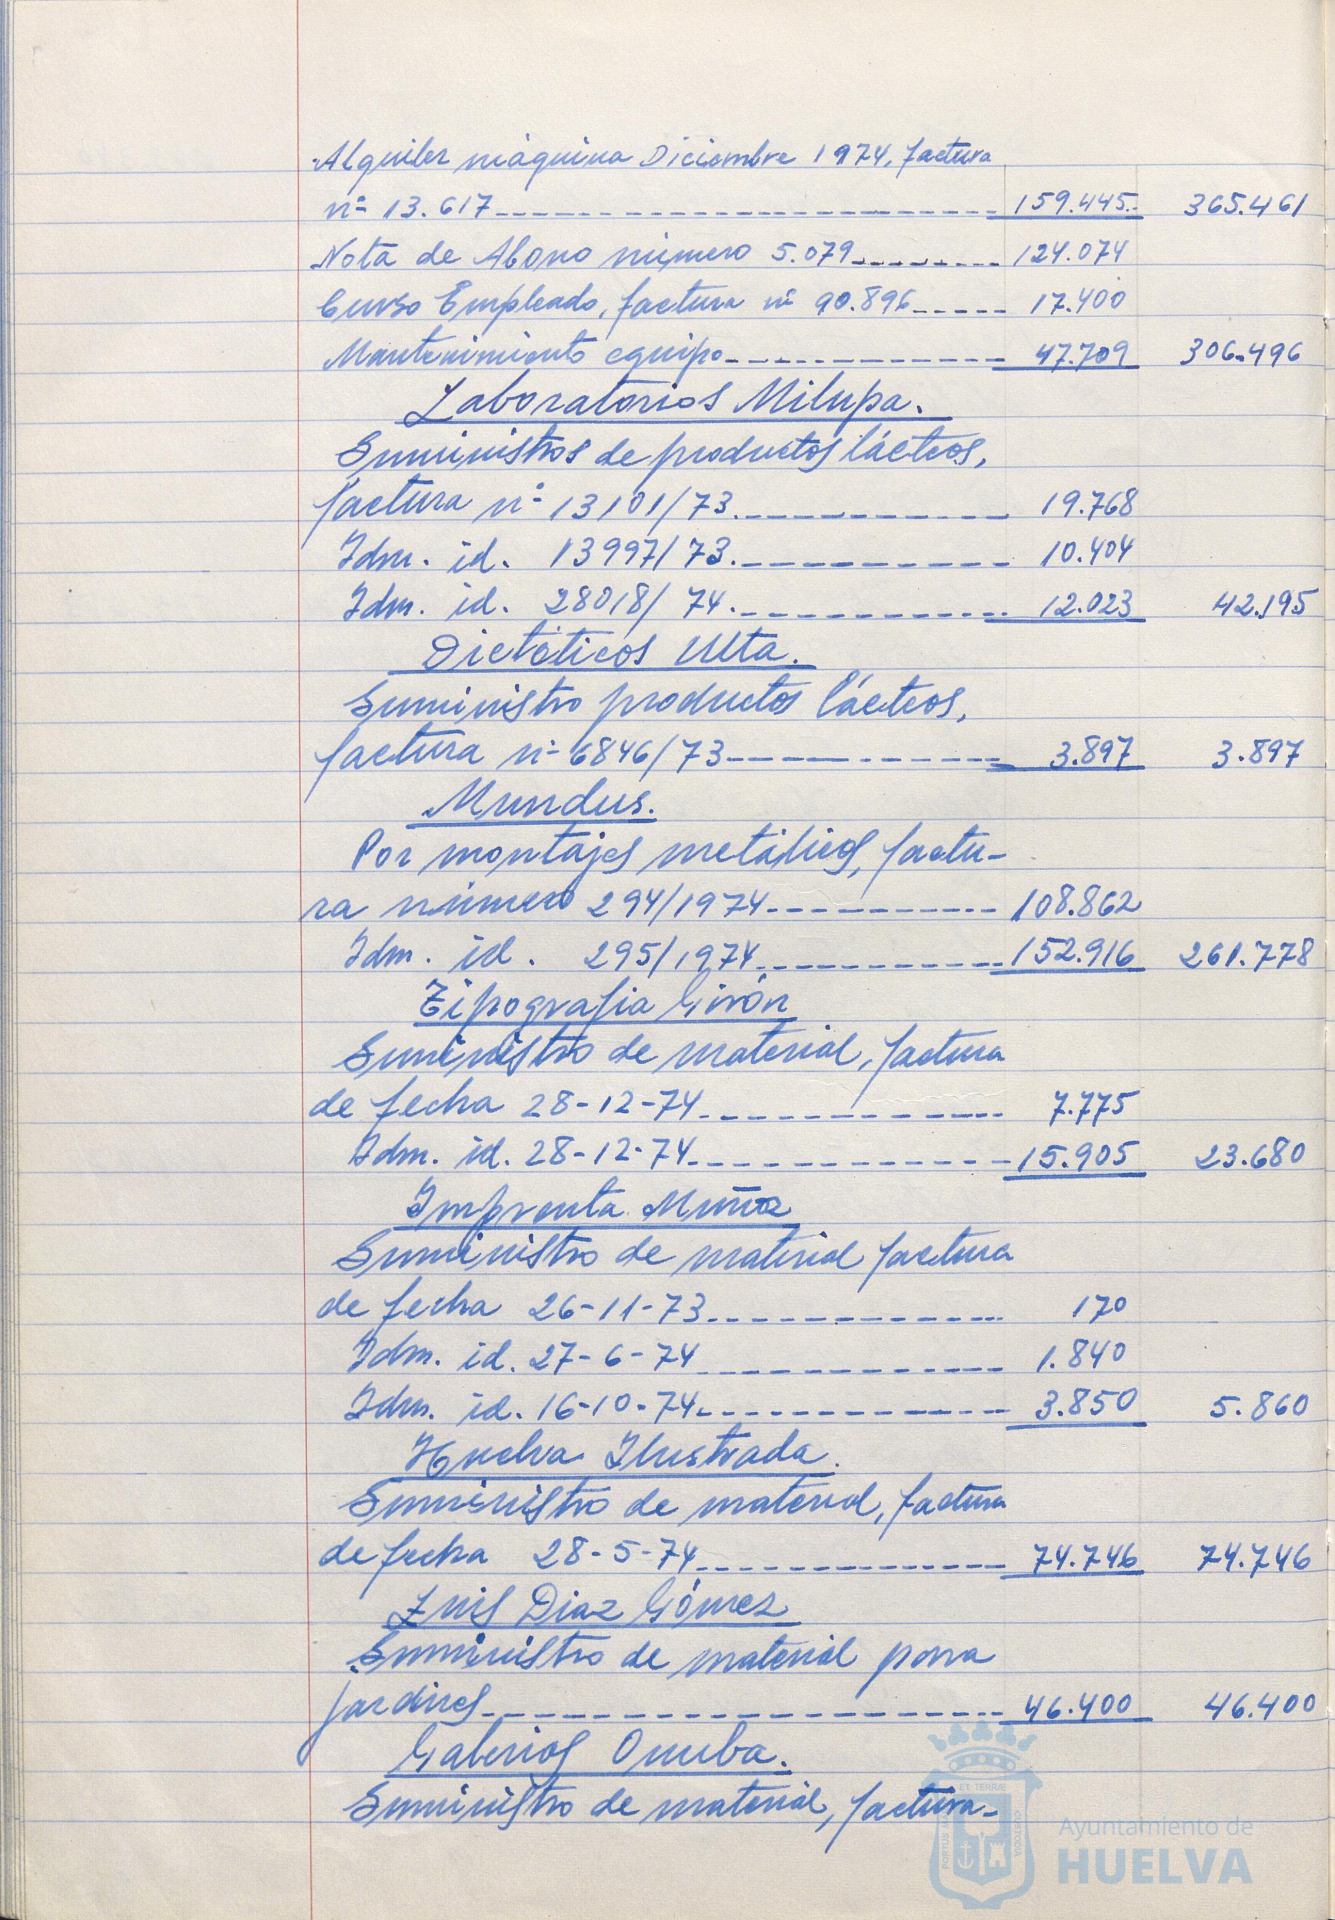 Alquiler máquina Diciembre 1974, factura
nº 13.617 159.445 365.461
Nota de Abono número 5.079 124.074
Curso Empleado, factura nº 90.896 17.400
Mantenimiento equipo 47.709 306.496
Laboratorios Milupa.
Suministros de productos lácteos,
factura nº 13101/73 19.768
Idm. id. 13997/73 10.404
Idm. id. 28018/74 12.023 42.195
Dietéticos Ulta.
Suministro productos lácteos,
factura nº 6846/73 3.897 3.897
Mundus.
Por montajes metálicos, factu-
ra número 294/1974 108.862
Idm. id. 295/1974 152.916 261.778
Tipografia Girón
Suministro de material, factura
de fecha 28-12-74 7.775
Idm. id. 28-12-74 15.905 23.680
Imprenta Muñoz
Suministro de material factura
de fecha 26-11-73 170
Idm. id. 27-6-74 1.840
Idm. id. 16-10-74 3.850 5.860
Huelva Ilustrada.
Suministro de material, factura
de fecha 28-5-74 74.746 74.746
Luis Diaz Gómez
Suministro de material para
jardines 46.400 46.400
Galerias Onuba.
Suministro de material, factura-
ET TERRAE
PORTUS MARIS
CUSTODIA
Ayuntamiento de
HUELVA